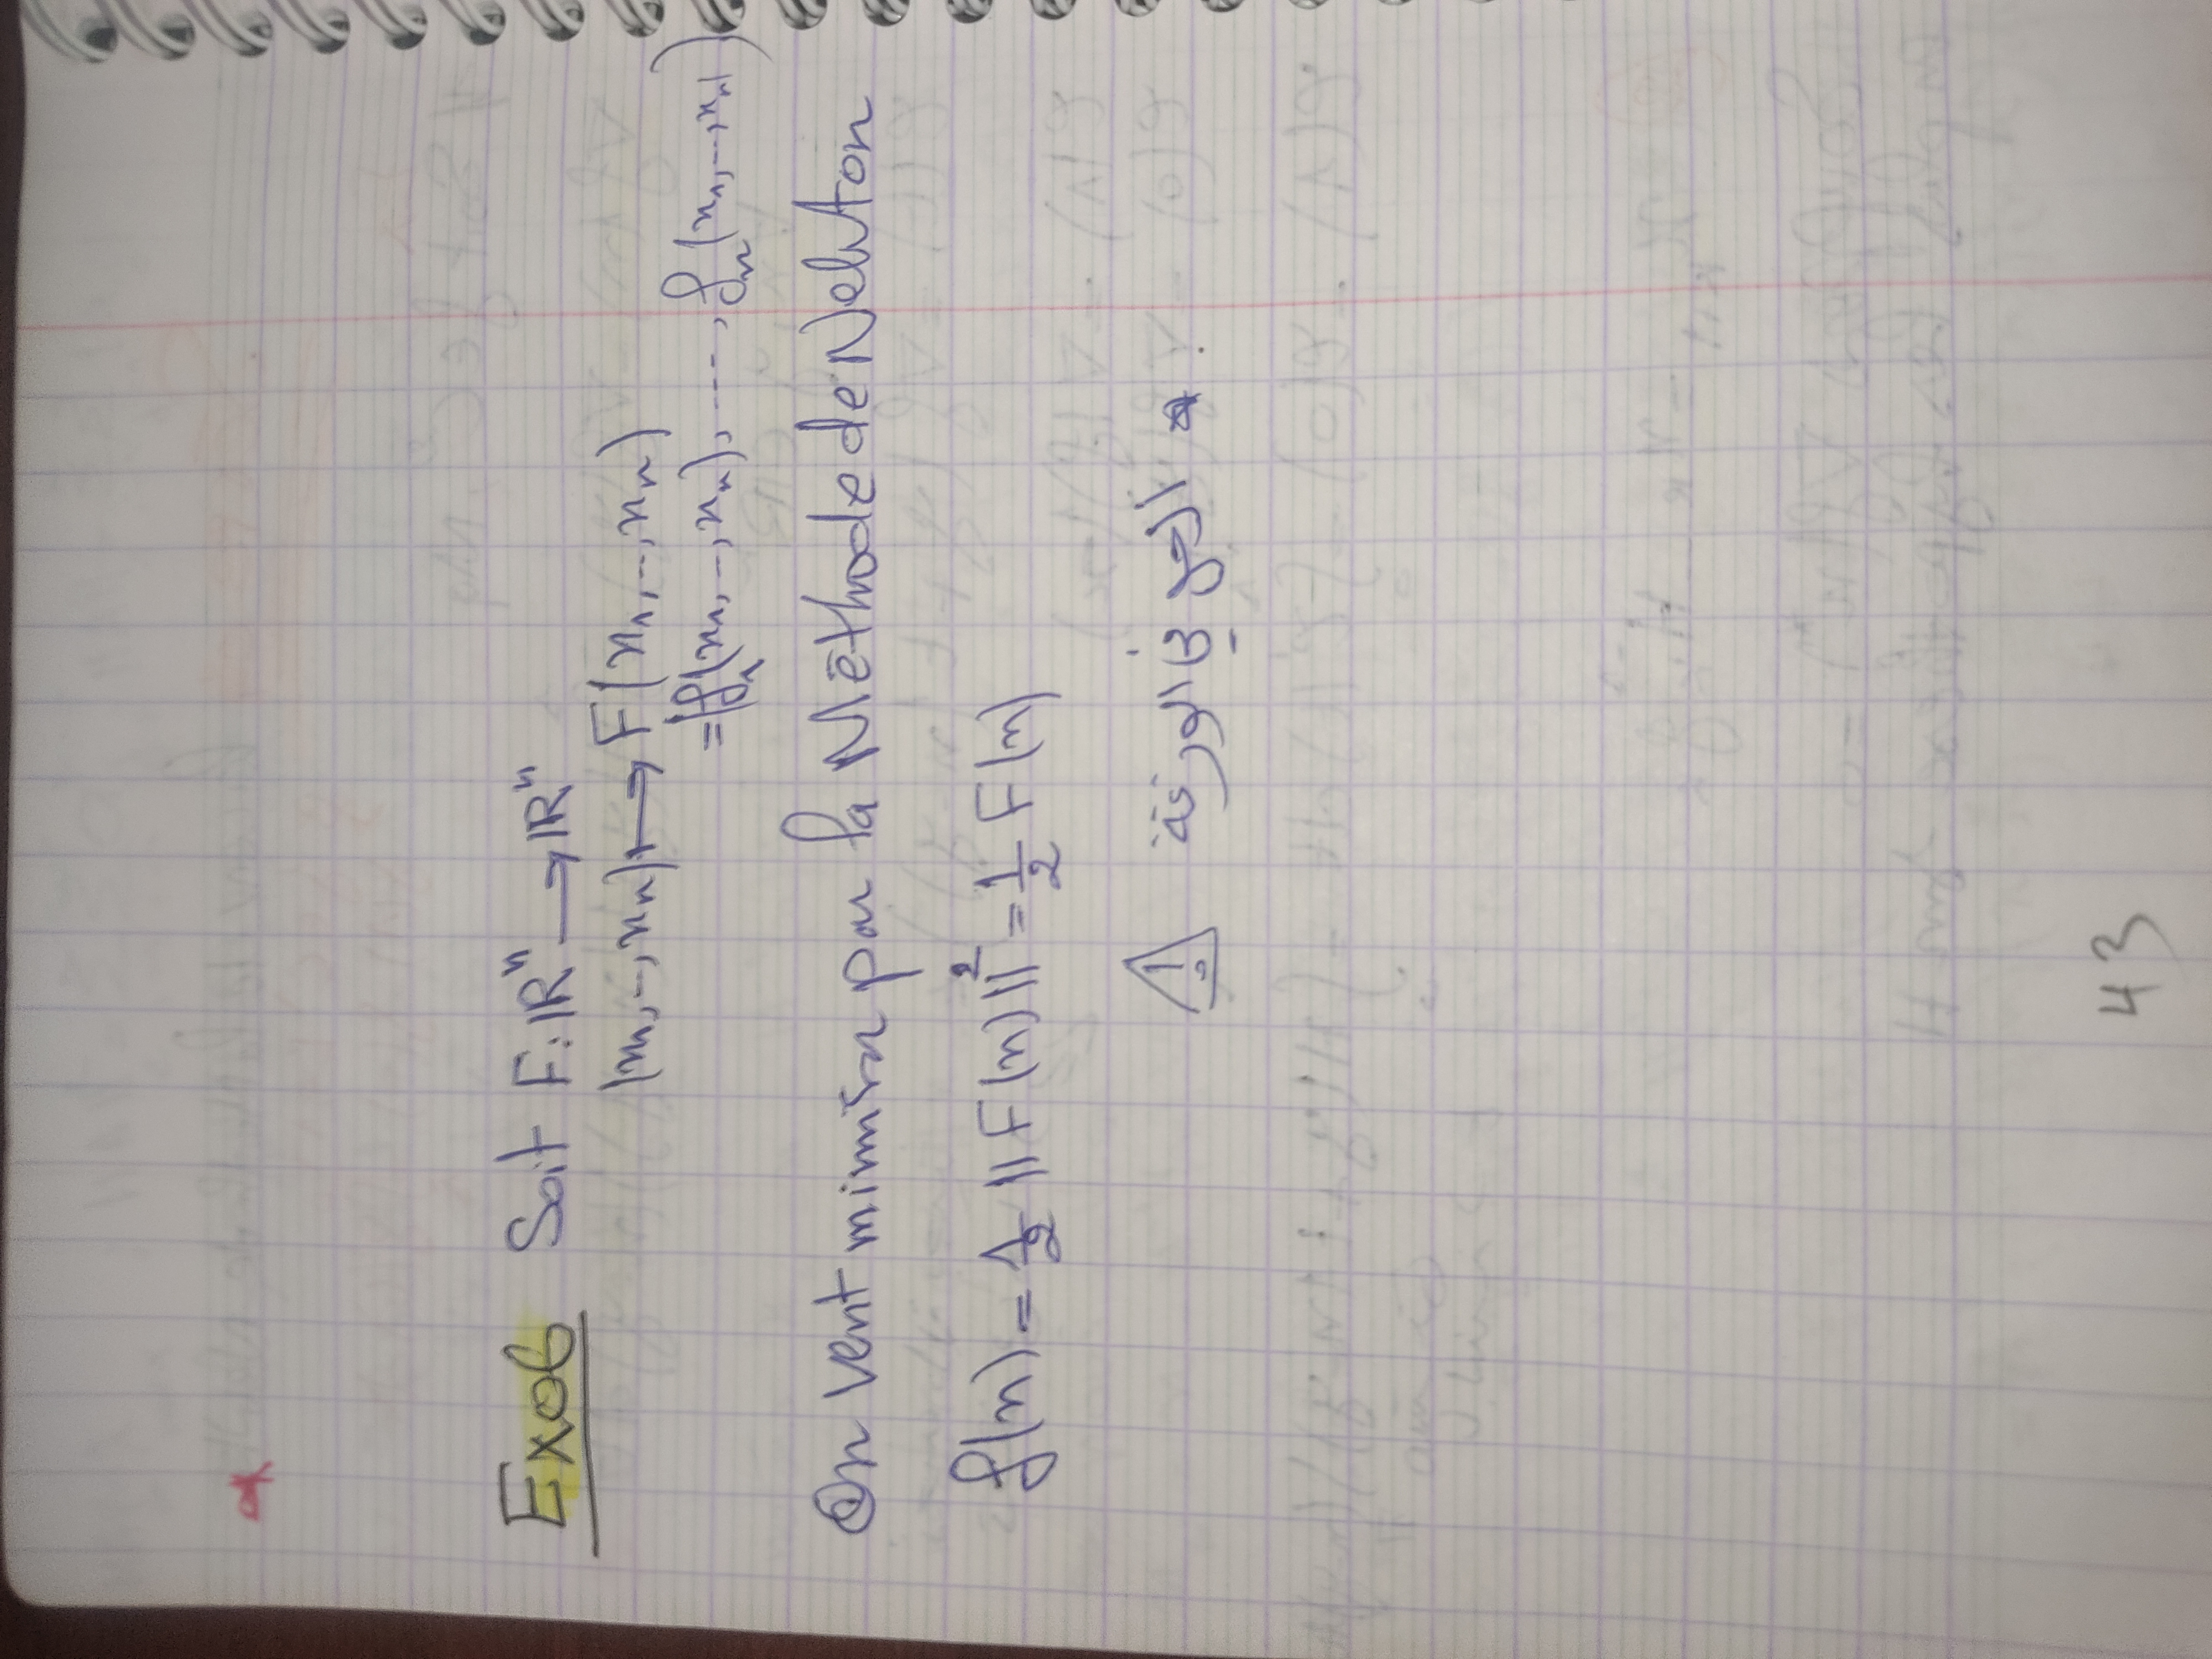 Exo6 Soit F: ℝⁿ → ℝⁿ
(x₁, .., xₙ) ↦ F(x₁, .., xₙ)
= (f₁(x₁, .., xₙ), ..., fₙ(x₁, .., xₙ)
On veut minimiser par la Méthode de Newton
f(x) = 1/2 ||F(x)||² = 1/2 F(x)
. * الحل في الورقة ⚠
43